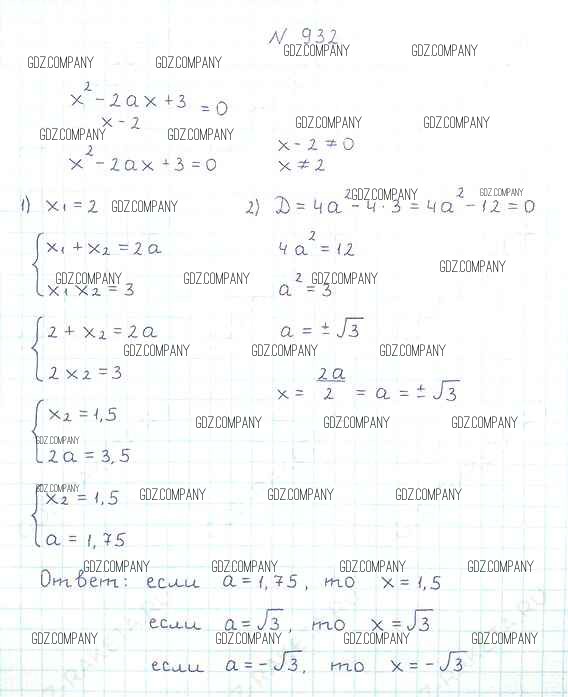 N 932
GDZ.COMPANY GDZ.COMPANY
GDZ.COMPANY GDZ.COMPANY
x² - 2ax + 3 = 0
x - 2
GDZ.COMPANY GDZ.COMPANY
GDZ.COMPANY GDZ.COMPANY
x - 2 ≠ 0
x² - 2ax + 3 = 0
x ≠ 2
1) x₁ = 2 GDZ.COMPANY
2) D = 4a² - 4·3 = 4a² - 12 = 0
GDZ.COMPANY GDZ.COMPANY
x₁ + x₂ = 2a
4a² = 12
GDZ.COMPANY
GDZ.COMPANY GDZ.COMPANY GDZ.COMPANY
x₁x₂ = 3
a² = 3
2 + x₂ = 2a
a = ±√3
GDZ.COMPANY GDZ.COMPANY GDZ.COMPANY
2x₂ = 3
x = 2a/2 = a = ±√3
x₂ = 1,5
GDZ.COMPANY GDZ.COMPANY GDZ.COMPANY
GDZ.COMPANY
2a = 3,5
GDZ.COMPANY
x₂ = 1,5 GDZ.COMPANY GDZ.COMPANY GDZ.COMPANY
a = 1,75
GDZ.COMPANY GDZ.COMPANY GDZ.COMPANY GDZ.COMPANY
Ответ: если a = 1,75, то x = 1,5
если a = √3, то x = √3
GDZ.COMPANY GDZ.COMPANY GDZ.COMPANY GDZ.COMPANY
если a = -√3, то x = -√3